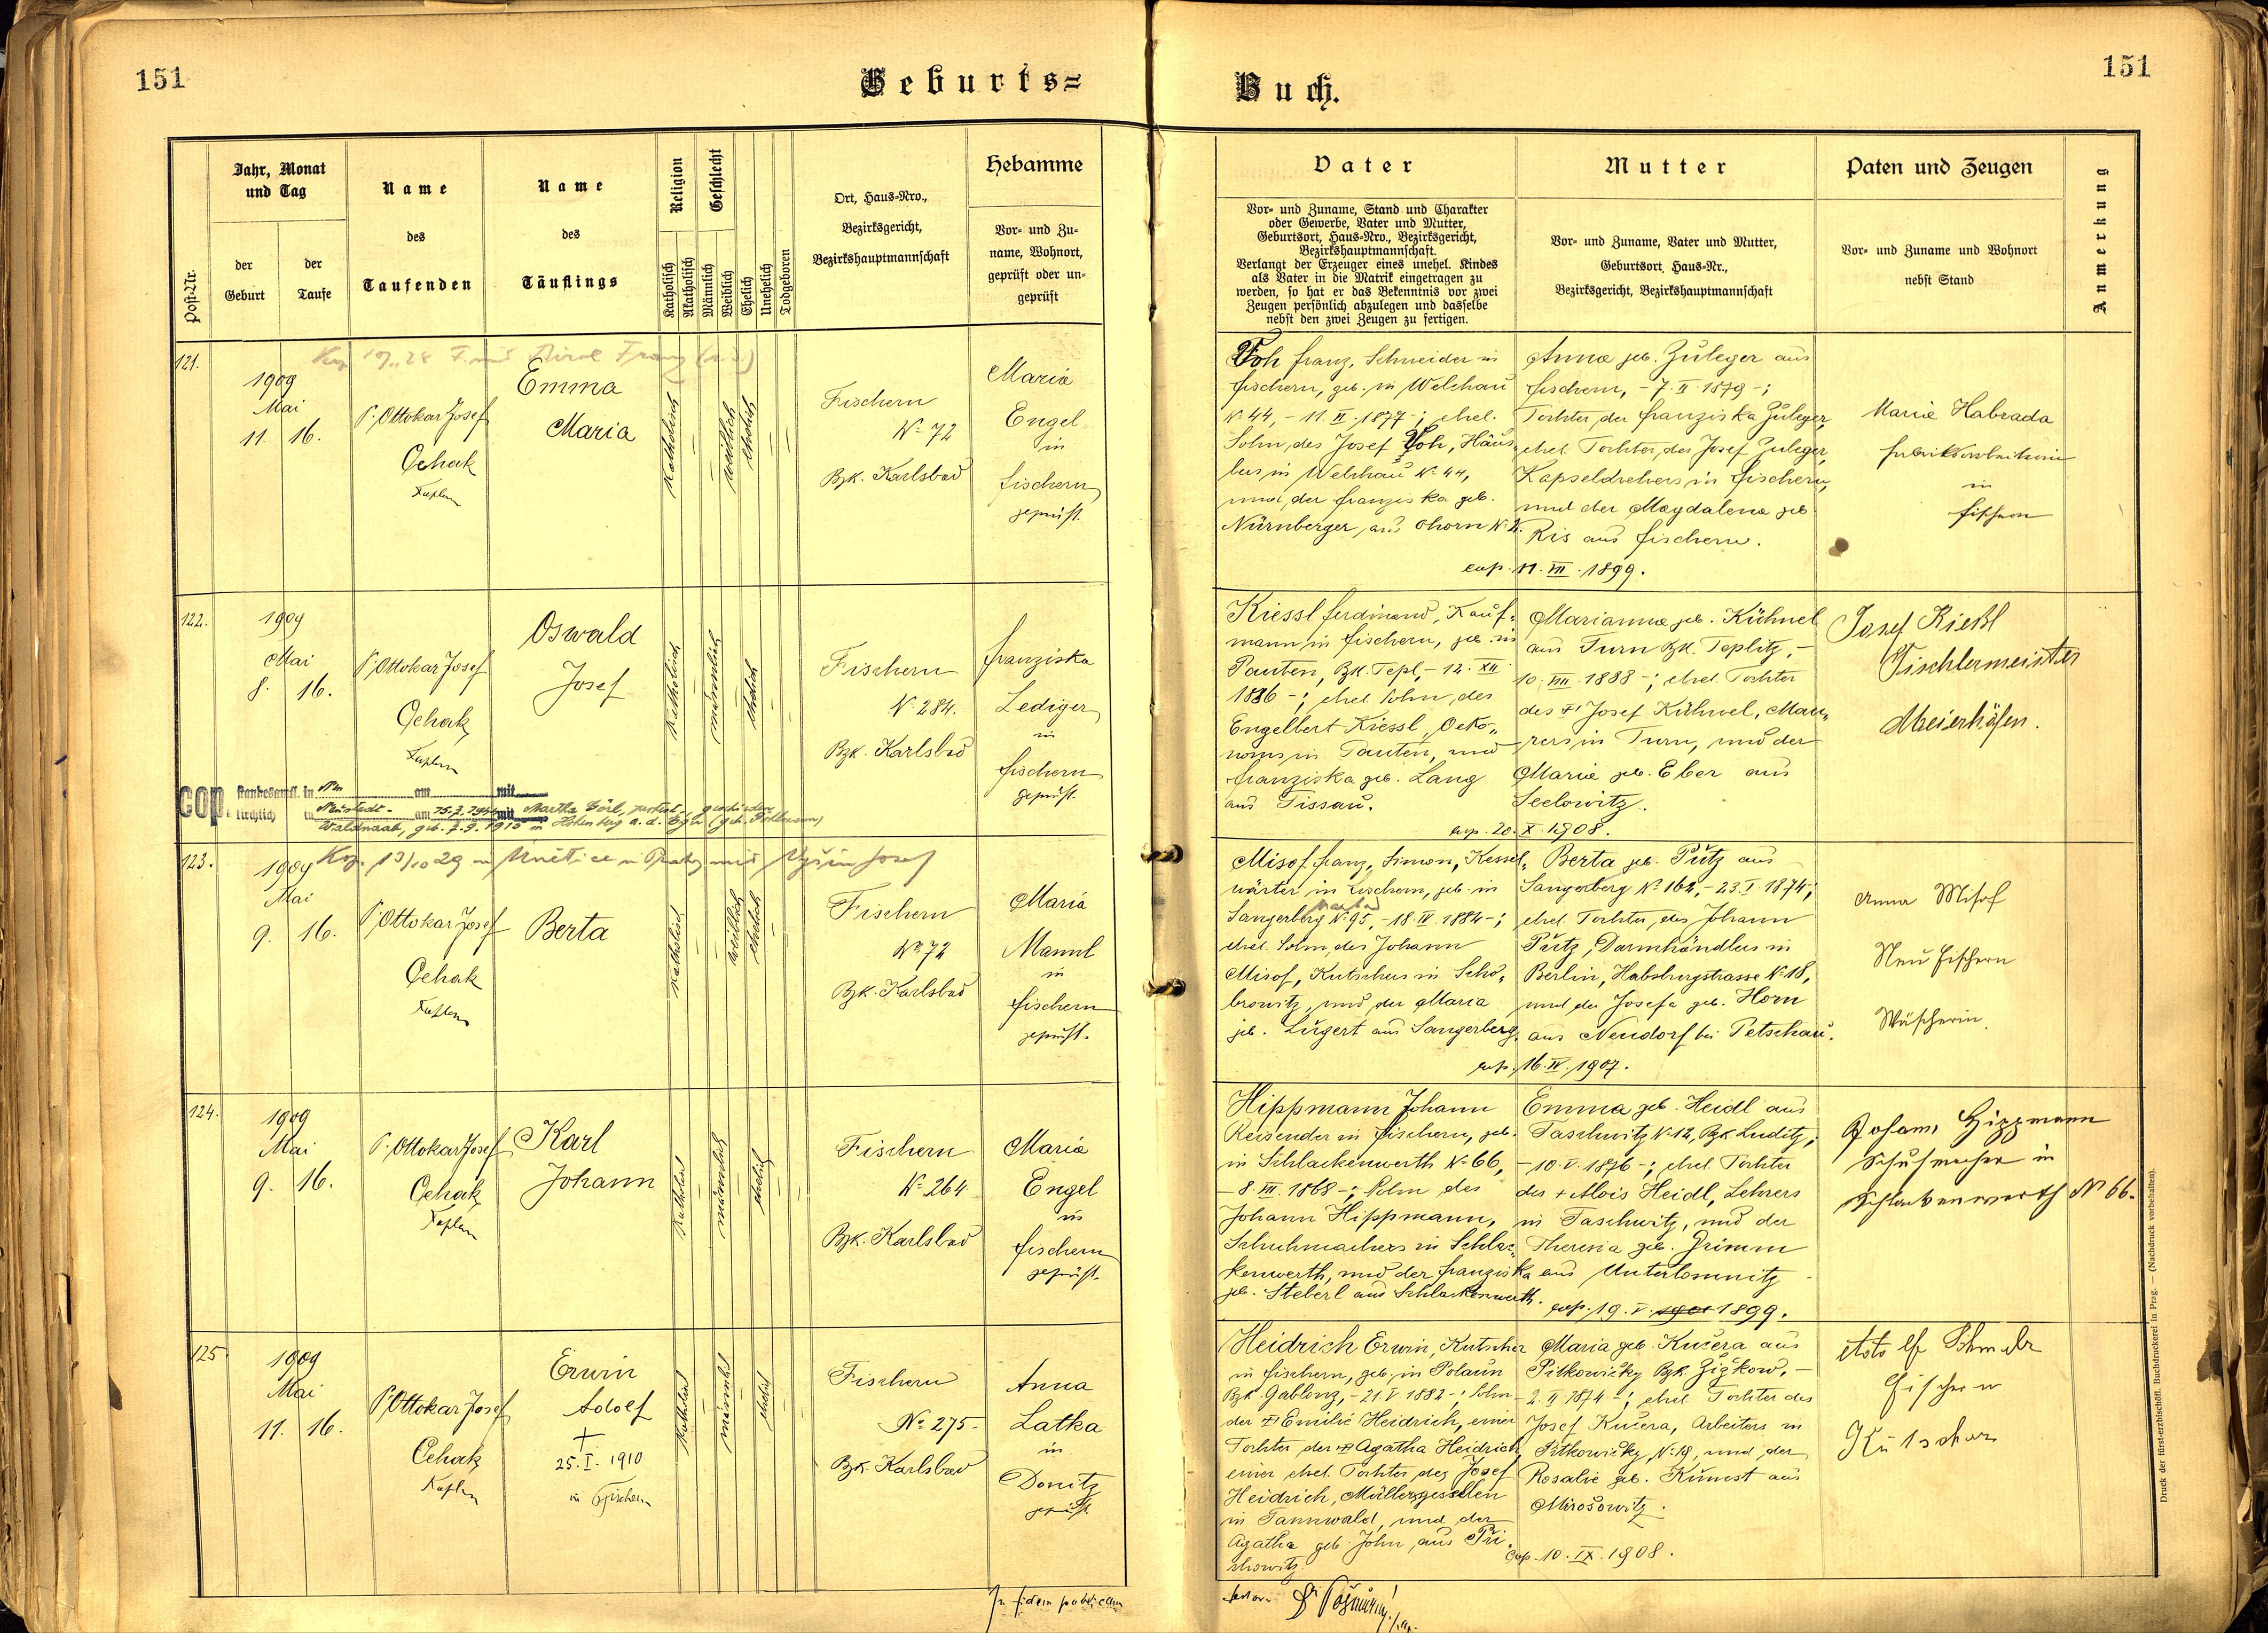 151
Geburts=
Buch.
151
Post-Nr.
Jahr, Monat
und Tag
der
Geburt
der
Taufe
Name
des
Taufenden
Name
des
Täuflings
Religion
Katholisch
Akatholisch
Geschlecht
Männlich
Weiblich
Ehelich
Unehelich
Todgeboren
Ort, Haus-Nro.,
Bezirksgericht,
Bezirkshauptmannschaft
Hebamme
Vor- und Zu-
name, Wohnort,
geprüft oder un-
geprüft
Vater
Vor- und Zuname, Stand und Charakter
oder Gewerbe, Vater und Mutter,
Geburtsort, Haus-Nro., Bezirksgericht,
Bezirkshauptmannschaft.
Verlangt der Erzeuger eines unehel. Kindes
als Vater in die Matrik eingetragen zu
werden, so hat er das Bekenntnis vor zwei
Zeugen persönlich abzulegen und dasselbe
nebst den zwei Zeugen zu fertigen.
Mutter
Vor- und Zuname, Vater und Mutter,
Geburtsort, Haus-Nr.,
Bezirksgericht, Bezirkshauptmannschaft
Paten und Zeugen
Vor- und Zuname und Wohnort
nebst Stand
Anmerkung
121.
1909
Mai
11. 16.
P. Ottokar Josef
Čehak
Kaplan
Emma
Maria
katholisch
weiblich
ehelich
Fischern
No 72
Bzk. Karlsbad
Maria
Engel
in
Fischern
geprüft.
Toh Franz, Schneider in
Fischern, geb. in Welchau
No 44, - 11. II. 1877 -; ehel.
Sohn des Josef Toh, Häus-
lers in Welchau No 44,
und der Franziska geb.
Nürnberger aus Ohorn No 2.
Anna geb. Zuleger aus
Fischern, - 7. II. 1879 -;
Tochter der Franziska Zuleger,
ehel. Tochter des Josef Zuleger,
Kapseldrehers in Fischern,
und der Magdalena geb.
Ris aus Fischern.
cop. 11. VII. 1899.
Maria Habrada
Fabriksarbeiterin
in
Fischern
122.
1909
Mai
8. 16.
P. Ottokar Josef
Čehak
Kaplan
Oswald
Josef
katholisch
männlich
ehelich
Fischern
No 284.
Bzk. Karlsbad
Franziska
Lediger
in
Fischern
geprüft.
Kiessl Ferdinand, Kauf-
mann in Fischern, geb. in
Pauten, Bzk. Tepl, - 12. XII.
1886 -; ehel. Sohn des
Engelbert Kiessl, Oeko-
noms in Pauten, und
Franziska geb. Lang
aus Tissau.
Marianna geb. Kühnel
aus Turn Bzk. Teplitz, -
10. VIII. 1888 -; ehel. Tochter
des + Josef Kühnel, Mau-
rers in Turn, und der
Maria geb. Eber aus
Seelowitz.
cop. 20. X. 1908.
Josef Kießl
Tischlermeister
Meierhöfen.
cop. standesamtl. in am mit
kirchlich in Neustadt- am 15.7.1944 mit
123.
1909
Mai
9. 16.
P. Ottokar Josef
Čehak
Kaplan
Berta
katholisch
weiblich
ehelich
Fischern
No 72
Bzk. Karlsbad
Maria
Mannl
in
Fischern
geprüft.
Misof Franz, Simon, Kessel-
wärter in Fischern, geb. in
Sangerberg No 95, - 18. IV. 1884 -;
ehel. Sohn des Johann
Misof, Kutschers in Scho-
browitz, und der Maria
geb. Lugert aus Sangerberg.
Berta geb. Pütz aus
Sangerberg No 162, - 23. I. 1874 -;
ehel. Tochter des Johann
Pütz, Darmhändlers in
Berlin, Habsburgstrasse No 18,
und der Josefa geb. Horn
aus Neudorf bei Petschau.
cop. 16. IV. 1907.
Anna Misof
Neu Fischern
Wäscherin.
124.
1909
Mai
9. 16.
P. Ottokar Josef
Čehak
Kaplan
Karl
Johann
katholisch
männlich
ehelich
Fischern
No 264
Bzk. Karlsbad
Maria
Engel
in
Fischern
geprüft.
Hippmann Johann
Reisender in Fischern, geb.
in Schlackenwerth No 66,
- 8. III. 1868 -; Sohn des
Johann Hippmann,
Schuhmachers in Schla-
kenwerth, und der Franziska
geb. Steberl aus Schlackenwerth.
Emma geb. Heidl aus
Taschwitz No 12, Bzk. Luditz,
- 10. V. 1876 -; ehel. Tochter
des + Alois Heidl, Lehrers
in Taschwitz, und der
Theresia geb. Grimm
aus Unterlomnitz.
cop. 19. V. 1901 1899.
Johann Hippmann
Schuhmacher in
Schlackenwerth No 66.
125.
1909
Mai
11. 16.
P. Ottokar Josef
Čehak
Kaplan
Erwin
Adolf
+
25. I. 1910
in Fischern
katholisch
männlich
ehelich
Fischern
No 275.
Bzk. Karlsbad
Anna
Latka
in
Donitz
geprüft.
Heidrich Erwin, Kutscher
in Fischern, geb. in Polaun
Bzk. Gablonz, - 21. V. 1882 -; Sohn
der + Emilie Heidrich, einer
Tochter der + Agatha Heidrich
einer ehel. Tochter des Josef
Heidrich, Müllersgesellen
in Tannwald, und der
Agatha geb. John aus Pri-
chowitz.
Maria geb. Kučera aus
Pitkowičky Bzk. Žižkow, -
2. II. 1874 -; ehel. Tochter des
Josef Kučera, Arbeiters in
Pitkowičky, No 18, und der
Rosalie geb. Kunst aus
Mirošowitz.
cop. 10. IX. 1908.
Adolf
Fischern
Kutscher
In fidem publicam
Druck der fürst-erzbischöfl. Buchdruckerei in Prag. — (Nachdruck vorbehalten).